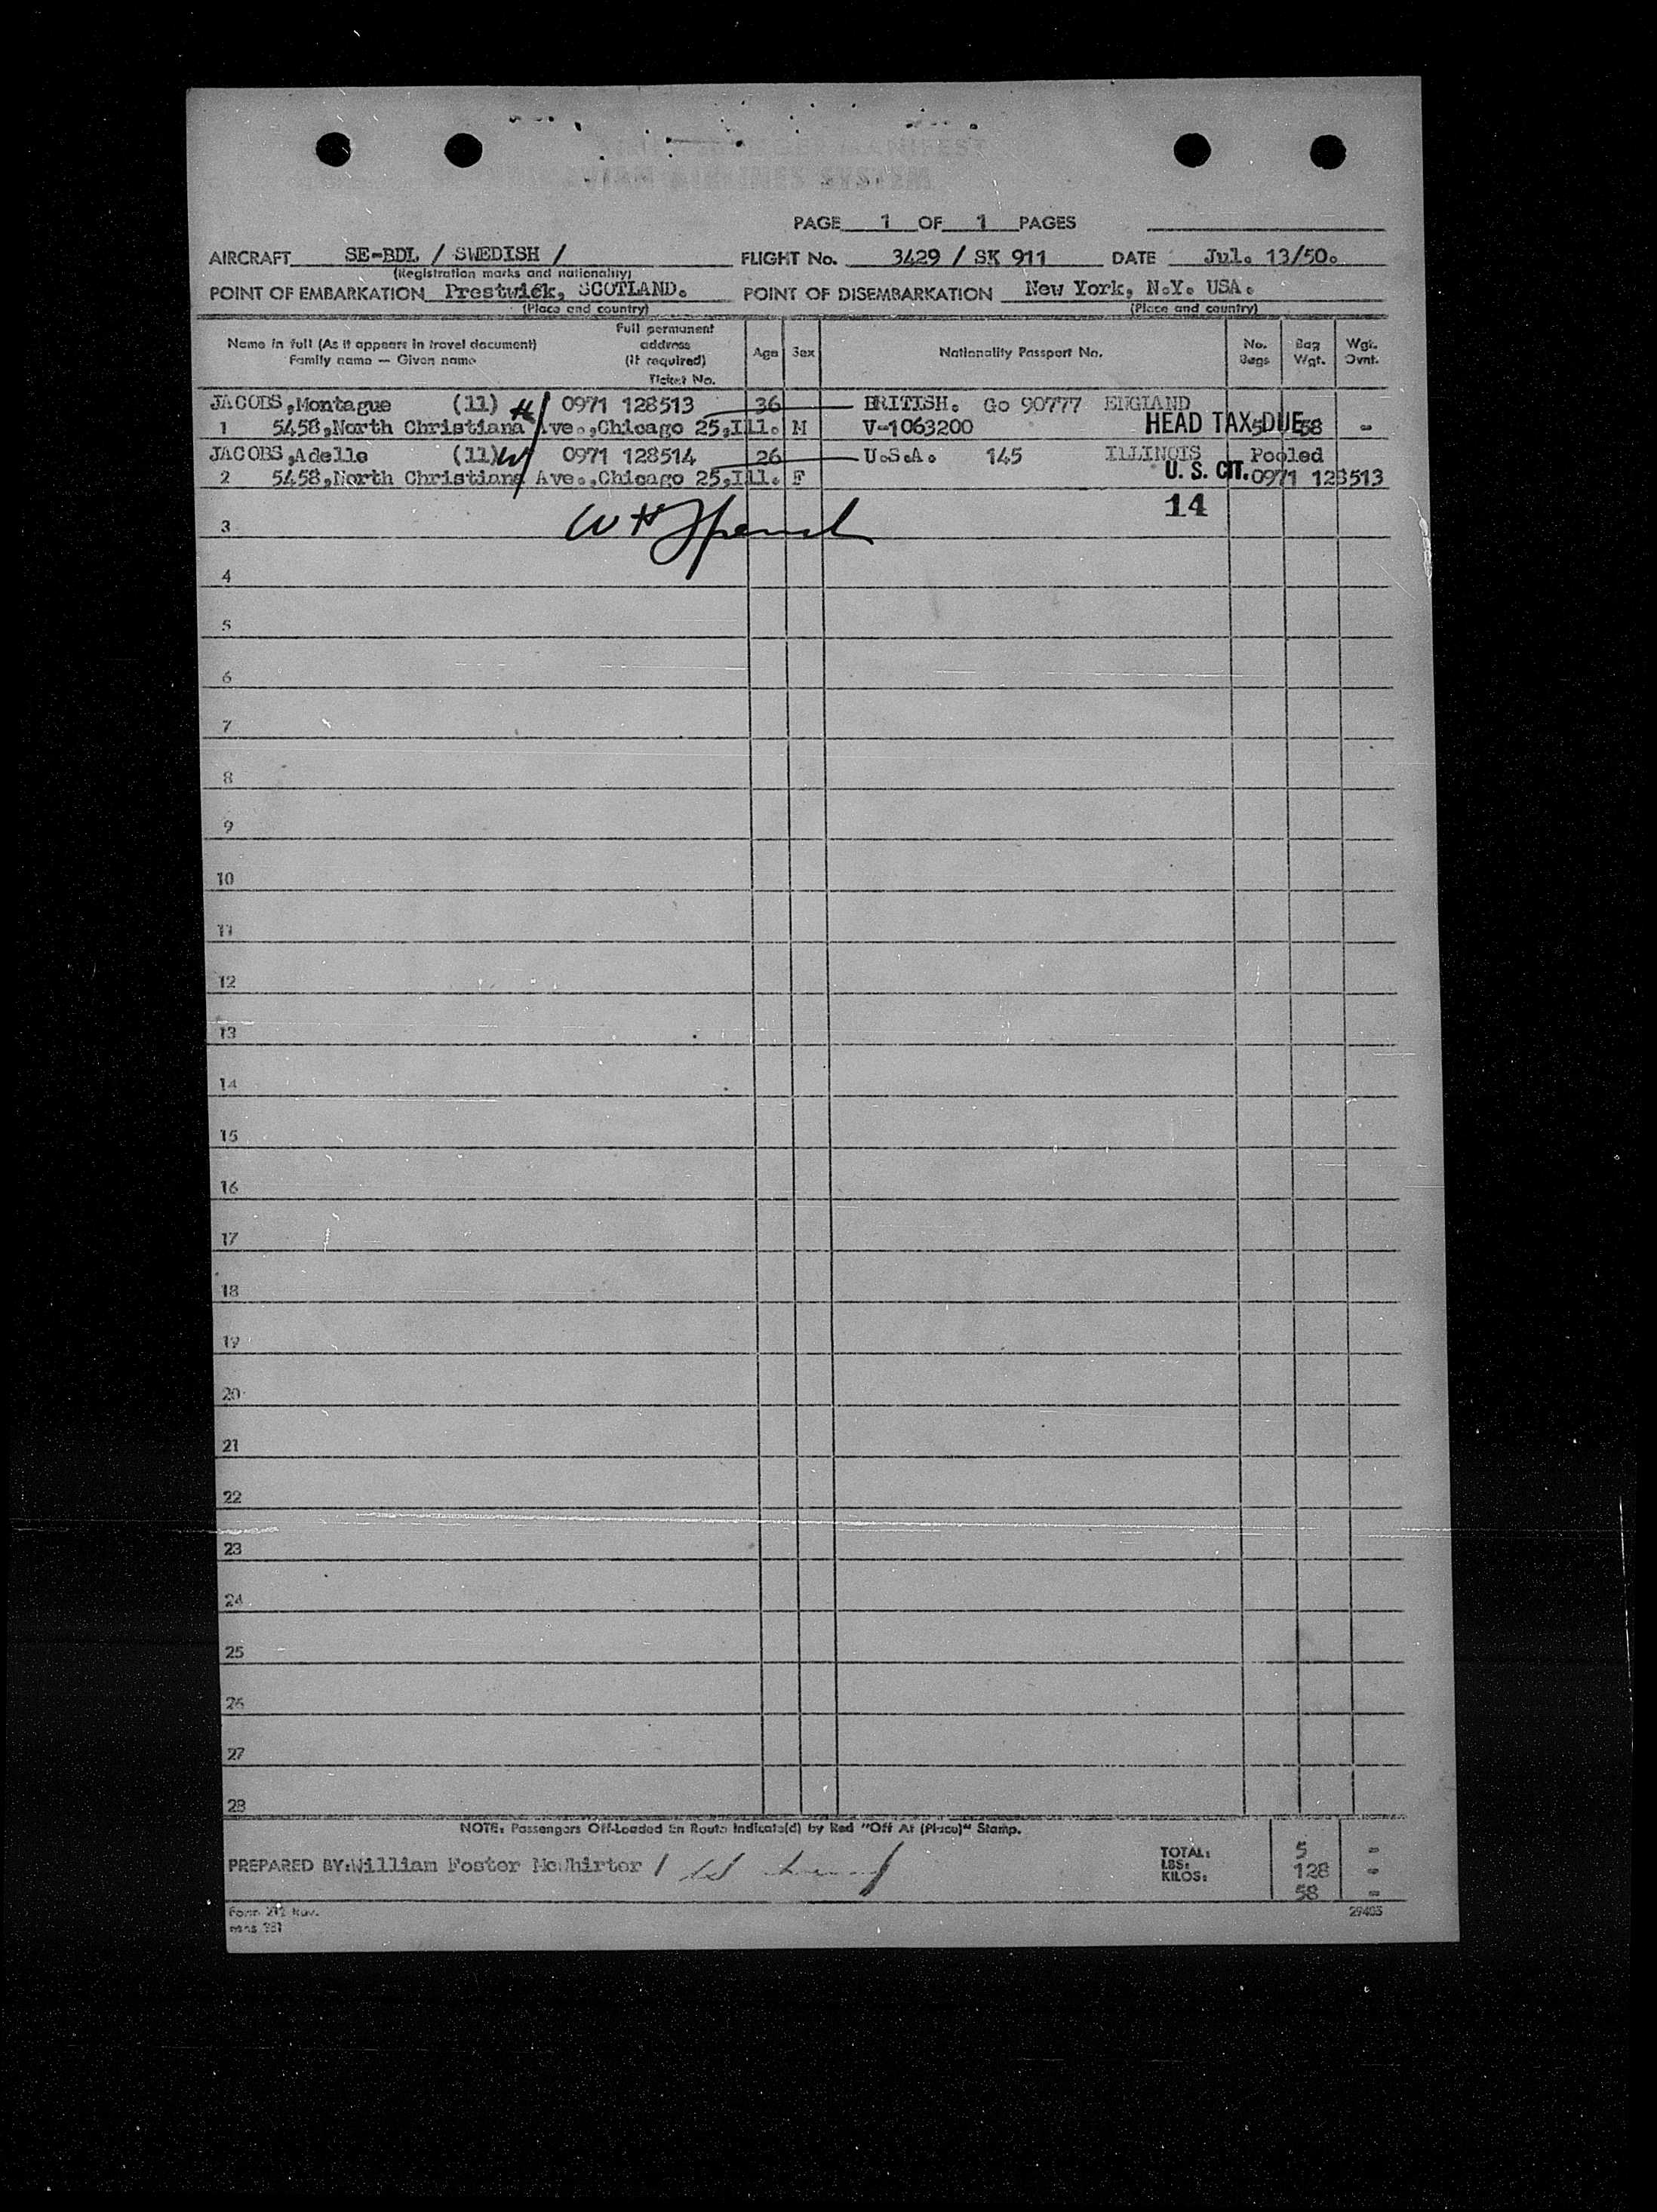 AIR PASSENGER MANIFEST
SCANDINAVIAN AIRLINES SYSTEM
PAGE 1 OF 1 PAGES
AIRCRAFT SE-BDL / SWEDISH / FLIGHT No. 3429 / SK 911 DATE Jul. 13/50.
(Registration marks and nationality)
POINT OF EMBARKATION Prestwick, SCOTLAND. POINT OF DISEMBARKATION New York, N.Y. USA.
(Place and country) (Place and country)
Name in full (As it appears in travel document) Family name — Given name
Full permanent address (if required) Ticket No.
Age
Sex
Nationality Passport No.
No. Bags
Bag Wgt.
Wgt. Ovnt.
JACOBS,Montague (11) H 0971 128513 36 BRITISH. Go 90777 ENGLAND
1 5458,North Christiana Ave.,Chicago 25,Ill. M V-1063200 HEAD TAX DUE 5 58 -
JACOBS,Adelle (11) W 0971 128514 26 U.S.A. 145 ILLINOIS Pooled
2 5458,North Christiana Ave.,Chicago 25,Ill. F U. S. CIT. 0971 128513
14
3
4
5
6
7
8
9
10
11
12
13
14
15
16
17
18
19
20
21
22
23
24
25
26
27
28
NOTE: Passengers Off-Loaded En Route Indicate(d) by Red "Off At (Place)" Stamp.
PREPARED BY:William Foster McWhirter /
TOTAL: 5 -
LBS: 128 -
KILOS: 58 -
Form 212 Rev.
29403